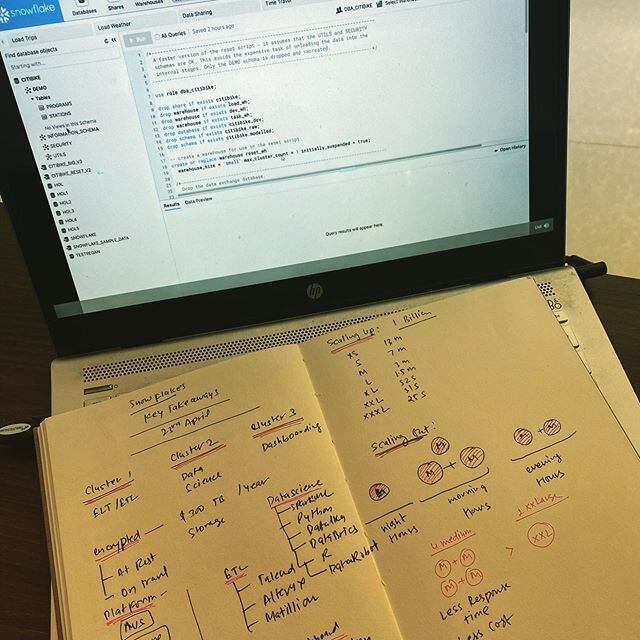 snowflake
Databases
Shares
Warehouses
Data Sharing
Time Travel
Load Trips
Load Weather
DBA_CITIBIKE
Find database objects
Starting with...
CITIBIKE
DEMO
Tables
PROGRAMS
STATIONS
No Views in this Schema
INFORMATION_SCHEMA
SECURITY
UTILS
CITIBIKE_BIG_V2
CITIBIKE_RESET_V2
HOL
HOL1
HOL2
HOL3
HOL4
HOL5
SNOWFLAKE
SNOWFLAKE_SAMPLE_DATA
TESTREGAN
Run
All Queries
Saved 2 hours ago
A faster version of the reset script - it assumes that the UTILS and SECURITY
schemas are OK. This avoids the expensive task of unloading the data into the
internal stages. Only the DEMO schema is dropped and recreated.
use role dba_citibike;
drop share if exists citibike;
drop warehouse if exists load_wh;
drop warehouse if exists dev_wh;
drop warehouse if exists task_wh;
drop database if exists citibike_dev;
drop schema if exists citibike.raw;
drop schema if exists citibike.modelled;
-- create a warehouse for use in the reset script
create or replace warehouse reset_wh
warehouse_size = 'small' max_cluster_count = 1 initially_suspended = true;
Drop the data exchange database
Results
Data Preview
Open History
Query results will appear here.
hp
Snowflakes
Key Takeaways
23rd April
Cluster 1
ELT/ETL
Cluster 2
Data
Science
Cluster 3
Dashboarding
encrypted
At Rest
On travel
Platform
AWS
$300 TB / year
Storage
Datascience
Python
Dataiku
DataBrics
R
DataRobot
ETL
Talend
Alteryx
Matillion
Scaling up: 1 Billion
XS 13 m
S 7 m
M 3 m
L 1.5 m
XL 52 s
XXL 31 s
XXXL 25 s
Scaling Out:
M
M + M
night
Hours
morning
hours
evening
Hours
4 medium
M + M
M + M
>
1 XXLarge
XXL
Less Response
time
Less Cost